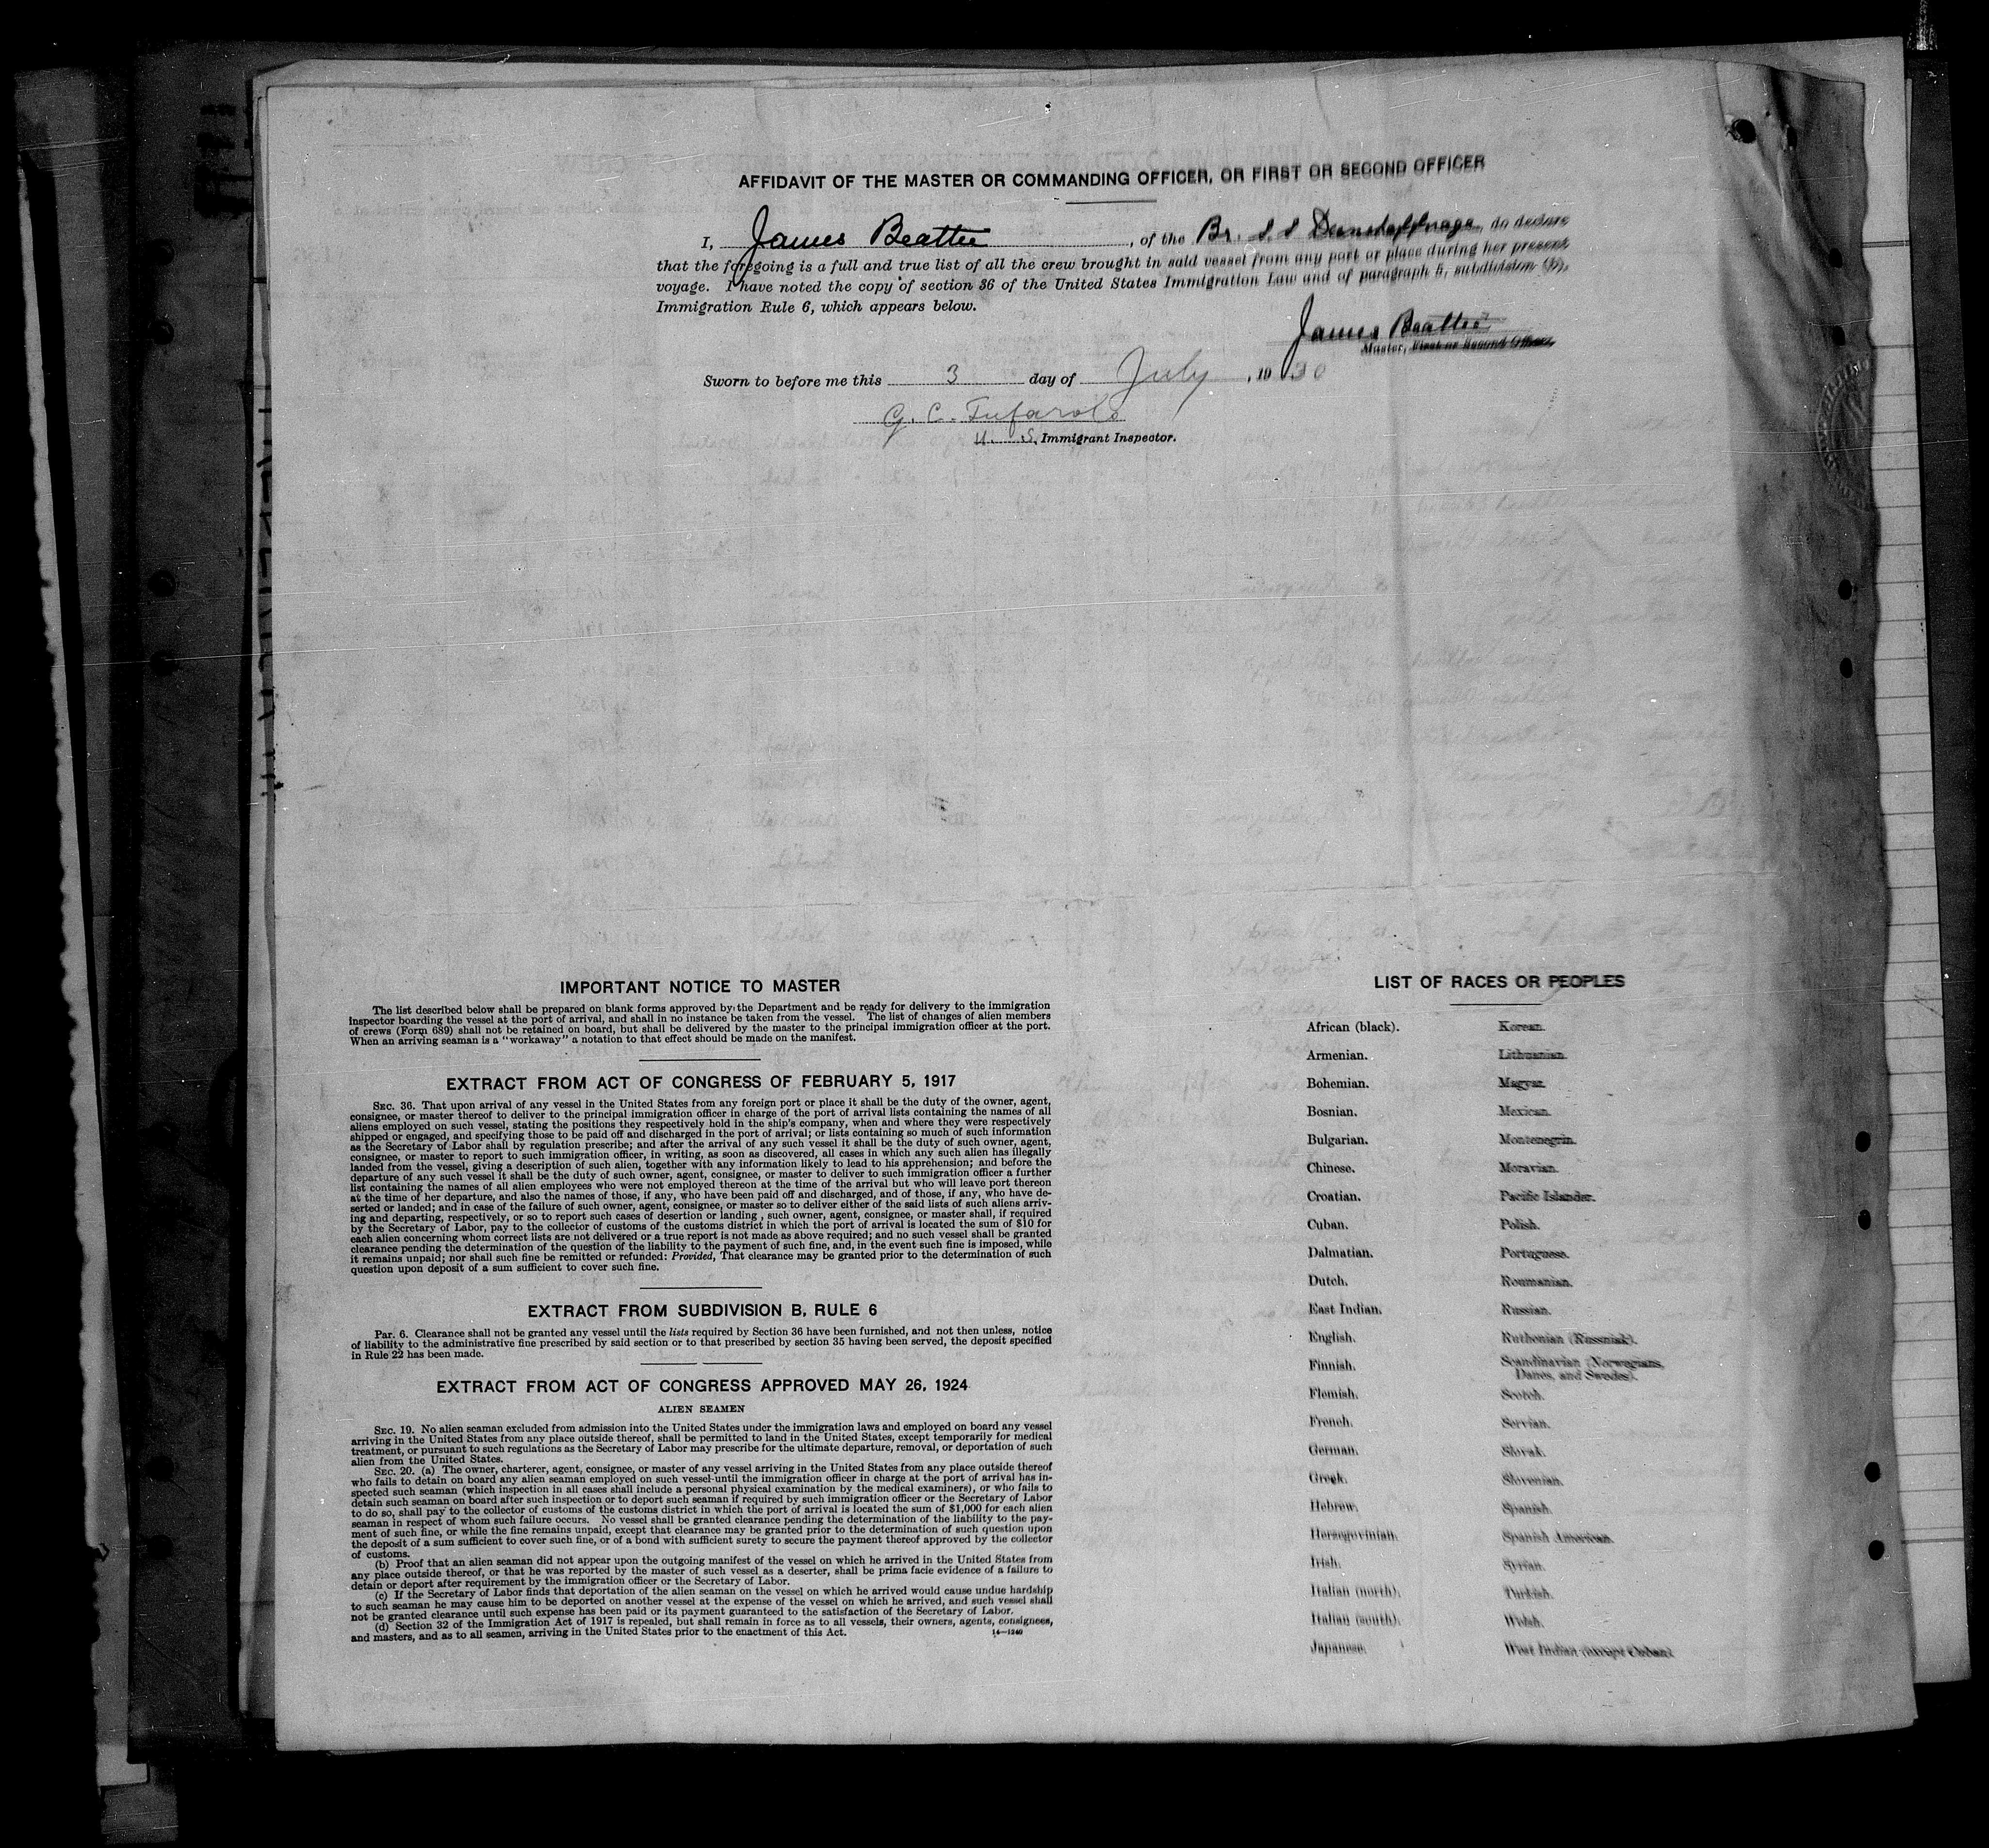 AFFIDAVIT OF THE MASTER OR COMMANDING OFFICER, OR FIRST OR SECOND OFFICER
I, James Beattie, of the Br. S.S , do declare
that the foregoing is a full and true list of all the crew brought in said vessel from any port or place during her present
voyage. I have noted the copy of section 36 of the United States Immigration Law and of paragraph 5, subdivision
Immigration Rule 6, which appears below.
James Beattie
Master, First or Second Officer.
Sworn to before me this 3 day of July, 1930
G. C. Tufarolo
U. S. Immigrant Inspector.
IMPORTANT NOTICE TO MASTER
The list described below shall be prepared on blank forms approved by the Department and be ready for delivery to the immigration
inspector boarding the vessel at the port of arrival, and shall in no instance be taken from the vessel. The list of changes of alien members
of crews (Form 689) shall not be retained on board, but shall be delivered by the master to the principal immigration officer at the port.
When an arriving seaman is a "workaway" a notation to that effect should be made on the manifest.
EXTRACT FROM ACT OF CONGRESS OF FEBRUARY 5, 1917
SEC. 36. That upon arrival of any vessel in the United States from any foreign port or place it shall be the duty of the owner, agent,
consignee, or master thereof to deliver to the principal immigration officer in charge of the port of arrival lists containing the names of all
aliens employed on such vessel, stating the positions they respectively hold in the ship's company, when and where they were respectively
shipped or engaged, and specifying those to be paid off and discharged in the port of arrival; or lists containing so much of such information
as the Secretary of Labor shall by regulation prescribe; and after the arrival of any such vessel it shall be the duty of such owner, agent,
consignee, or master to report to such immigration officer, in writing, as soon as discovered, all cases in which any such alien has illegally
landed from the vessel, giving a description of such alien, together with any information likely to lead to his apprehension; and before the
departure of any such vessel it shall be the duty of such owner, agent, consignee, or master to deliver to such immigration officer a further
list containing the names of all alien employees who were not employed thereon at the time of the arrival but who will leave port thereon
at the time of her departure, and also the names of those, if any, who have been paid off and discharged, and of those, if any, who have de-
serted or landed; and in case of the failure of such owner, agent, consignee, or master so to deliver either of the said lists of such aliens arriv-
ing and departing, respectively, or so to report such cases of desertion or landing , such owner, agent, consignee, or master shall, if required
by the Secretary of Labor, pay to the collector of customs of the customs district in which the port of arrival is located the sum of $10 for
each alien concerning whom correct lists are not delivered or a true report is not made as above required; and no such vessel shall be granted
clearance pending the determination of the question of the liability to the payment of such fine, and, in the event such fine is imposed, while
it remains unpaid; nor shall such fine be remitted or refunded: Provided, That clearance may be granted prior to the determination of such
question upon deposit of a sum sufficient to cover such fine.
EXTRACT FROM SUBDIVISION B, RULE 6
Par. 6. Clearance shall not be granted any vessel until the lists required by Section 36 have been furnished, and not then unless, notice
of liability to the administrative fine prescribed by said section or to that prescribed by section 35 having been served, the deposit specified
in Rule 22 has been made.
EXTRACT FROM ACT OF CONGRESS APPROVED MAY 26, 1924
ALIEN SEAMEN
SEC. 19. No alien seaman excluded from admission into the United States under the immigration laws and employed on board any vessel
arriving in the United States from any place outside thereof, shall be permitted to land in the United States, except temporarily for medical
treatment, or pursuant to such regulations as the Secretary of Labor may prescribe for the ultimate departure, removal, or deportation of such
alien from the United States.
SEC. 20. (a) The owner, charterer, agent, consignee, or master of any vessel arriving in the United States from any place outside thereof
who fails to detain on board any alien seaman employed on such vessel until the immigration officer in charge at the port of arrival has in-
spected such seaman (which inspection in all cases shall include a personal physical examination by the medical examiners), or who fails to
detain such seaman on board after such inspection or to deport such seaman if required by such immigration officer or the Secretary of Labor
to do so, shall pay to the collector of customs of the customs district in which the port of arrival is located the sum of $1,000 for each alien
seaman in respect of whom such failure occurs. No vessel shall be granted clearance pending the determination of the liability to the pay-
ment of such fine, or while the fine remains unpaid, except that clearance may be granted prior to the determination of such question upon
the deposit of a sum sufficient to cover such fine, or of a bond with sufficient surety to secure the payment thereof approved by the collector
of customs.
(b) Proof that an alien seaman did not appear upon the outgoing manifest of the vessel on which he arrived in the United States from
any place outside thereof, or that he was reported by the master of such vessel as a deserter, shall be prima facie evidence of a failure to
detain or deport after requirement by the immigration officer or the Secretary of Labor.
(c) If the Secretary of Labor finds that deportation of the alien seaman on the vessel on which he arrived would cause undue hardship
to such seaman he may cause him to be deported on another vessel at the expense of the vessel on which he arrived, and such vessel shall
not be granted clearance until such expense has been paid or its payment guaranteed to the satisfaction of the Secretary of Labor.
(d) Section 32 of the Immigration Act of 1917 is repealed, but shall remain in force as to all vessels, their owners, agents, consignees,
and masters, and as to all seamen, arriving in the United States prior to the enactment of this Act. 14—1240
LIST OF RACES OR PEOPLES
African (black).
Armenian.
Bohemian.
Bosnian.
Bulgarian.
Chinese.
Croatian.
Cuban.
Dalmatian.
Dutch.
East Indian.
English.
Finnish.
Flemish.
French.
German.
Greek.
Hebrew.
Herzegovinian.
Irish.
Italian (north).
Italian (south).
Japanese.
Korean.
Lithuanian.
Magyar.
Mexican.
Montenegrin.
Moravian.
Pacific Islander.
Polish.
Portuguese.
Roumanian.
Russian.
Ruthenian (Russniak).
Scandinavian (Norwegians,
Danes, and Swedes).
Scotch.
Servian.
Slovak.
Slovenian.
Spanish.
Spanish American.
Syrian.
Turkish.
Welsh.
West Indian (except Cuban).